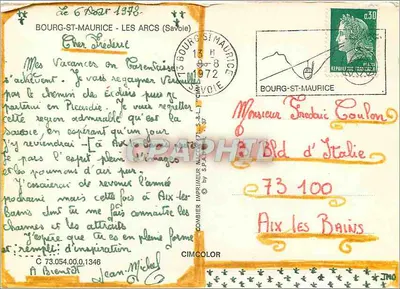 Le 6 Août 1972
BOURG-ST-MAURICE - LES ARCS (Savoie)
Cher Frédéric
Mes Vacances en Tarentaise
s'achèvent. Je vais regagner
par le chemin de
en Picardie. Je vous regrettes
cette région admirable qu'est la
Savoie, en espérant qu'un jour
J'y reviendrai
Je pars l'esprit plein d'images
et les poumons d'air pur.
J'essaierai de revenir l'année
prochaine mais cette fois à Aix-les
Bains dont tu me fais connaître les
charmes et les attraits
J'espère que tu es en pleine forme
et rempli d'inspiration
A Bientôt Jean-Michel
C 73.054.00.0.1346
CIMCOLOR
COMBIER IMPRIMEUR MACON
by S.P.A.D.E.M.
73 BOURG-ST-MAURICE
13 H
8-8
1972
SAVOIE
BOURG-ST-MAURICE
0,30
Monsieur Frédéric Coulon
Bld d'Italie
73 100
Aix les BAINS